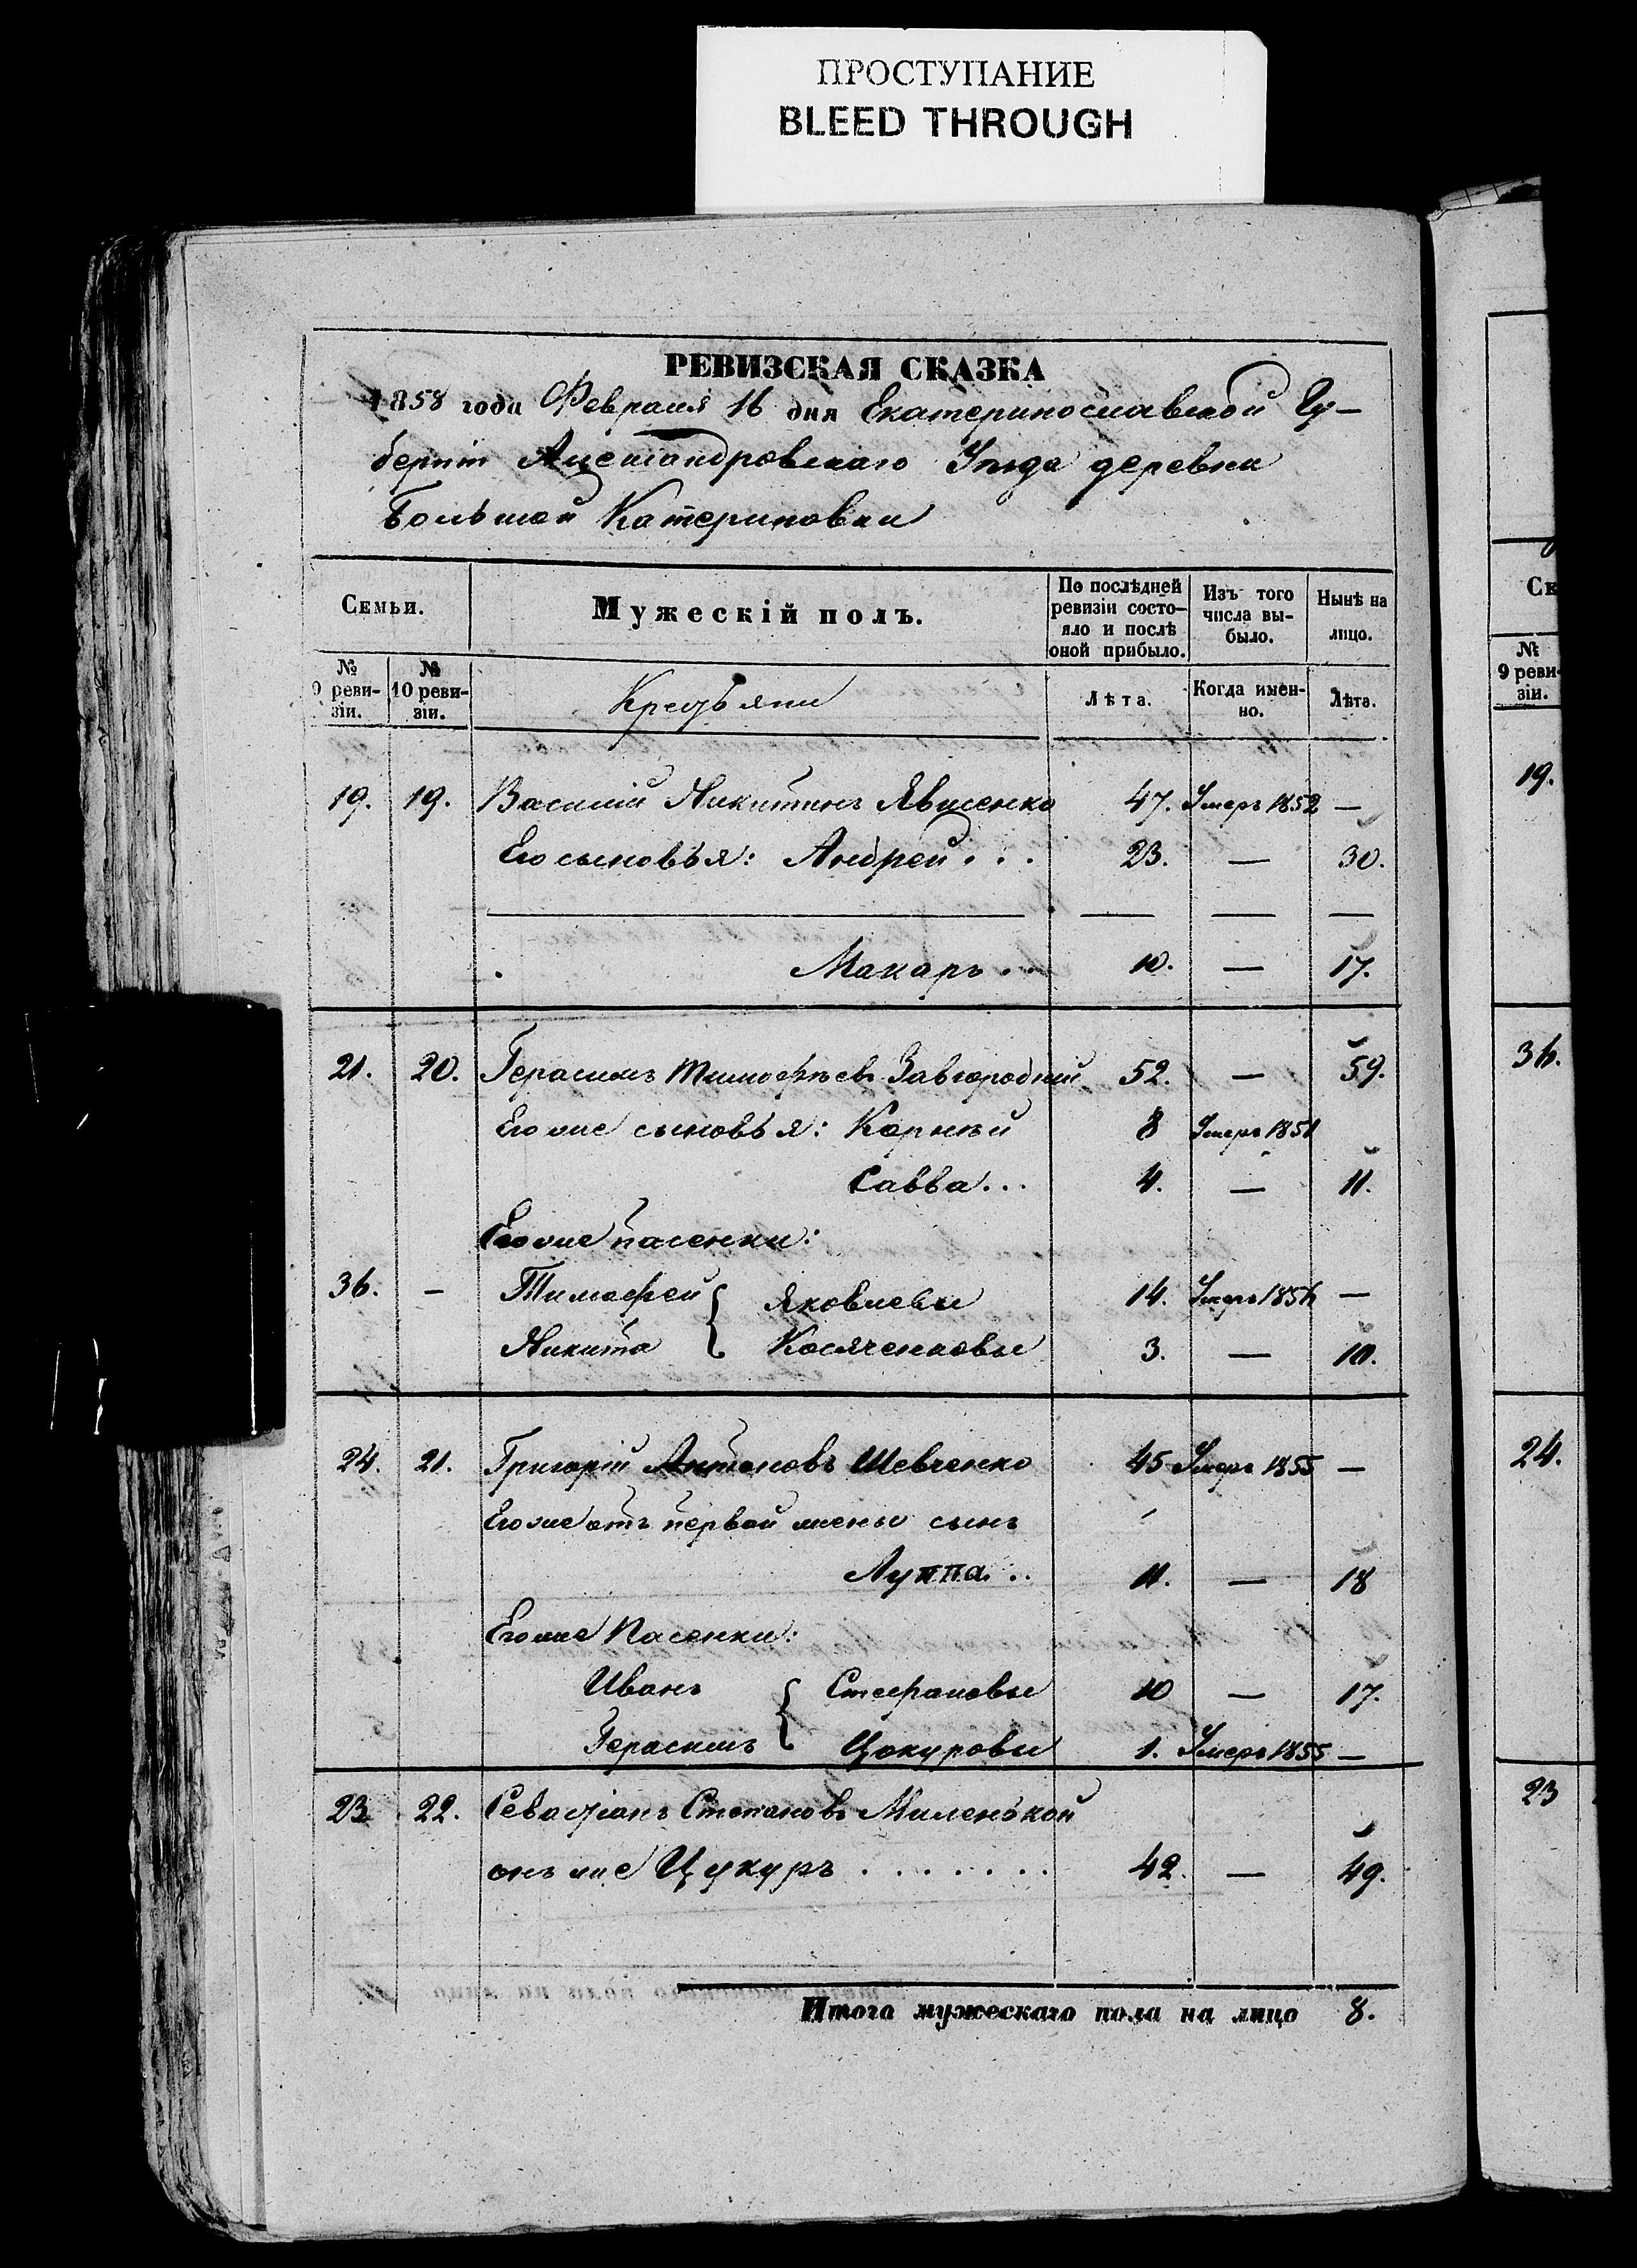 ПРОСТУПАНИЕ
BLEED THROUGH
РЕВИЗСКАЯ СКАЗКА
1858 года Февраля 16 дня Екатеринославской Гу-
берніи Александровскаго Уѣзда деревни
Большой Катериновки
Семьи.
Мужескій полъ.
По послѣдней ревизіи состо-яло и послѣ оной прибыло.
Изъ того числа вы-было.
Нынѣ на лицо.
№ 9 реви-зіи.
№ 10 реви-зіи.
Крестьяне
Лѣта.
Когда имен-но.
Лѣта.
19. 19. Василій Никитинъ Явисенко 47. Умеръ 1852 —
Его сыновья: Андрей... 23. — 30.
Макаръ... 10. — 17.
21. 20. Герасимъ Тимофѣевъ Завгородній 52. — 59.
Его же сыновья: Корнѣй 8 Умеръ 1851
Савва... 4. — 11.
Его же пасенки:
36. — Тимофей { Яковлевы 14. Умеръ 1856 —
Никита Косяченковы 3. — 10.
24. 21. Григорій Антоновъ Шевченко 45 Умеръ 1855 —
Его же отъ первой жены сынъ
Луппа... 11. — 18
Его же Пасенки:
Иванъ { Стефановы 10 — 17.
Герасимъ Цокуровы 1. Умеръ 1855 —
23 22. Севастіанъ Степановъ Миленькой
онъ же Цукуръ....... 42. — 49.
Итого мужескаго пола на лицо 8.
Ск
№ 9 реви-зіи.
19.
36.
24.
23